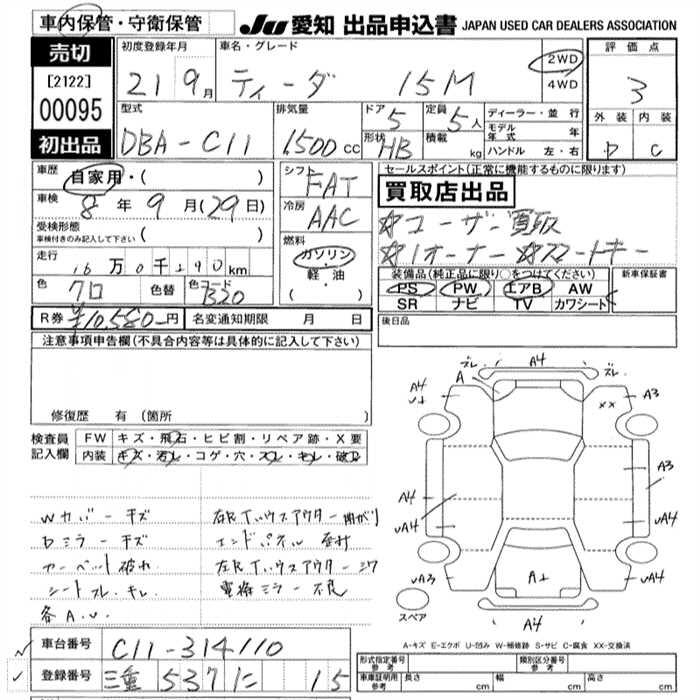 車内保管・守衛保管
JU 愛知 出品申込書 JAPAN USED CAR DEALERS ASSOCIATION
売切
[2122]
00095
初出品
初度登録年月
21 9月
車名・グレード
ティーダ 15M
2WD
4WD
評価点
3
外装 内装
D C
型式
DBA-C11
排気量
1500cc
ドア 5
形状 HB
定員 5人
積載 kg
ディーラー・並行
モデル年式 年
ハンドル 左・右
車歴 自家用・( )
車検 8年9月(29日)
受検形態
車検付きのみ記入して下さい ( )
走行 16万0千290km
色 クロ 色替 コード B20
シフト FAT
冷房 AAC
燃料
ガソリン
・
軽・油
( )
セールスポイント(正常に機能するものに限ります)
買取店出品
☆ユーザー買取
☆1オーナー ☆スマートキー
装備品(純正品に限り○をつけてください)
PS PW エアB AW
SR ナビ TV カワシート
新車保証書
R券 ¥10,580円 名変通知期限 月 日
後日品
注意事項申告欄(不具合内容等は具体的に記入して下さい)
修復歴 有 (箇所
検査員記入欄
FW キズ・飛石・ヒビ割・リペア跡・X要
内装 キズ・汚れ・コゲ・穴・スレ・キレ・破れ
Wカバーキズ
Dミラーキズ
カーペット破れ
シートスレ、キレ
各A.U
左R Tハウスアウター曲がり
エンドパネル 歪み
左R Tハウスアウターシワ
電格ミラー不良
ズレ A4 ズレ
A4 A A3
××
A3
A4
UA4 UA4
UA3 A1 UA4
スペア A4
A-キズ E-エクボ U-凹み W-補修跡 S-サビ C-腐食 XX-交換済
車台番号 C11-314110
登録番号 三重 537 に 15
形式指定番号 参考
類別区分番号 参考
車庫証明用 参考 長さ cm 幅 cm 高さ cm